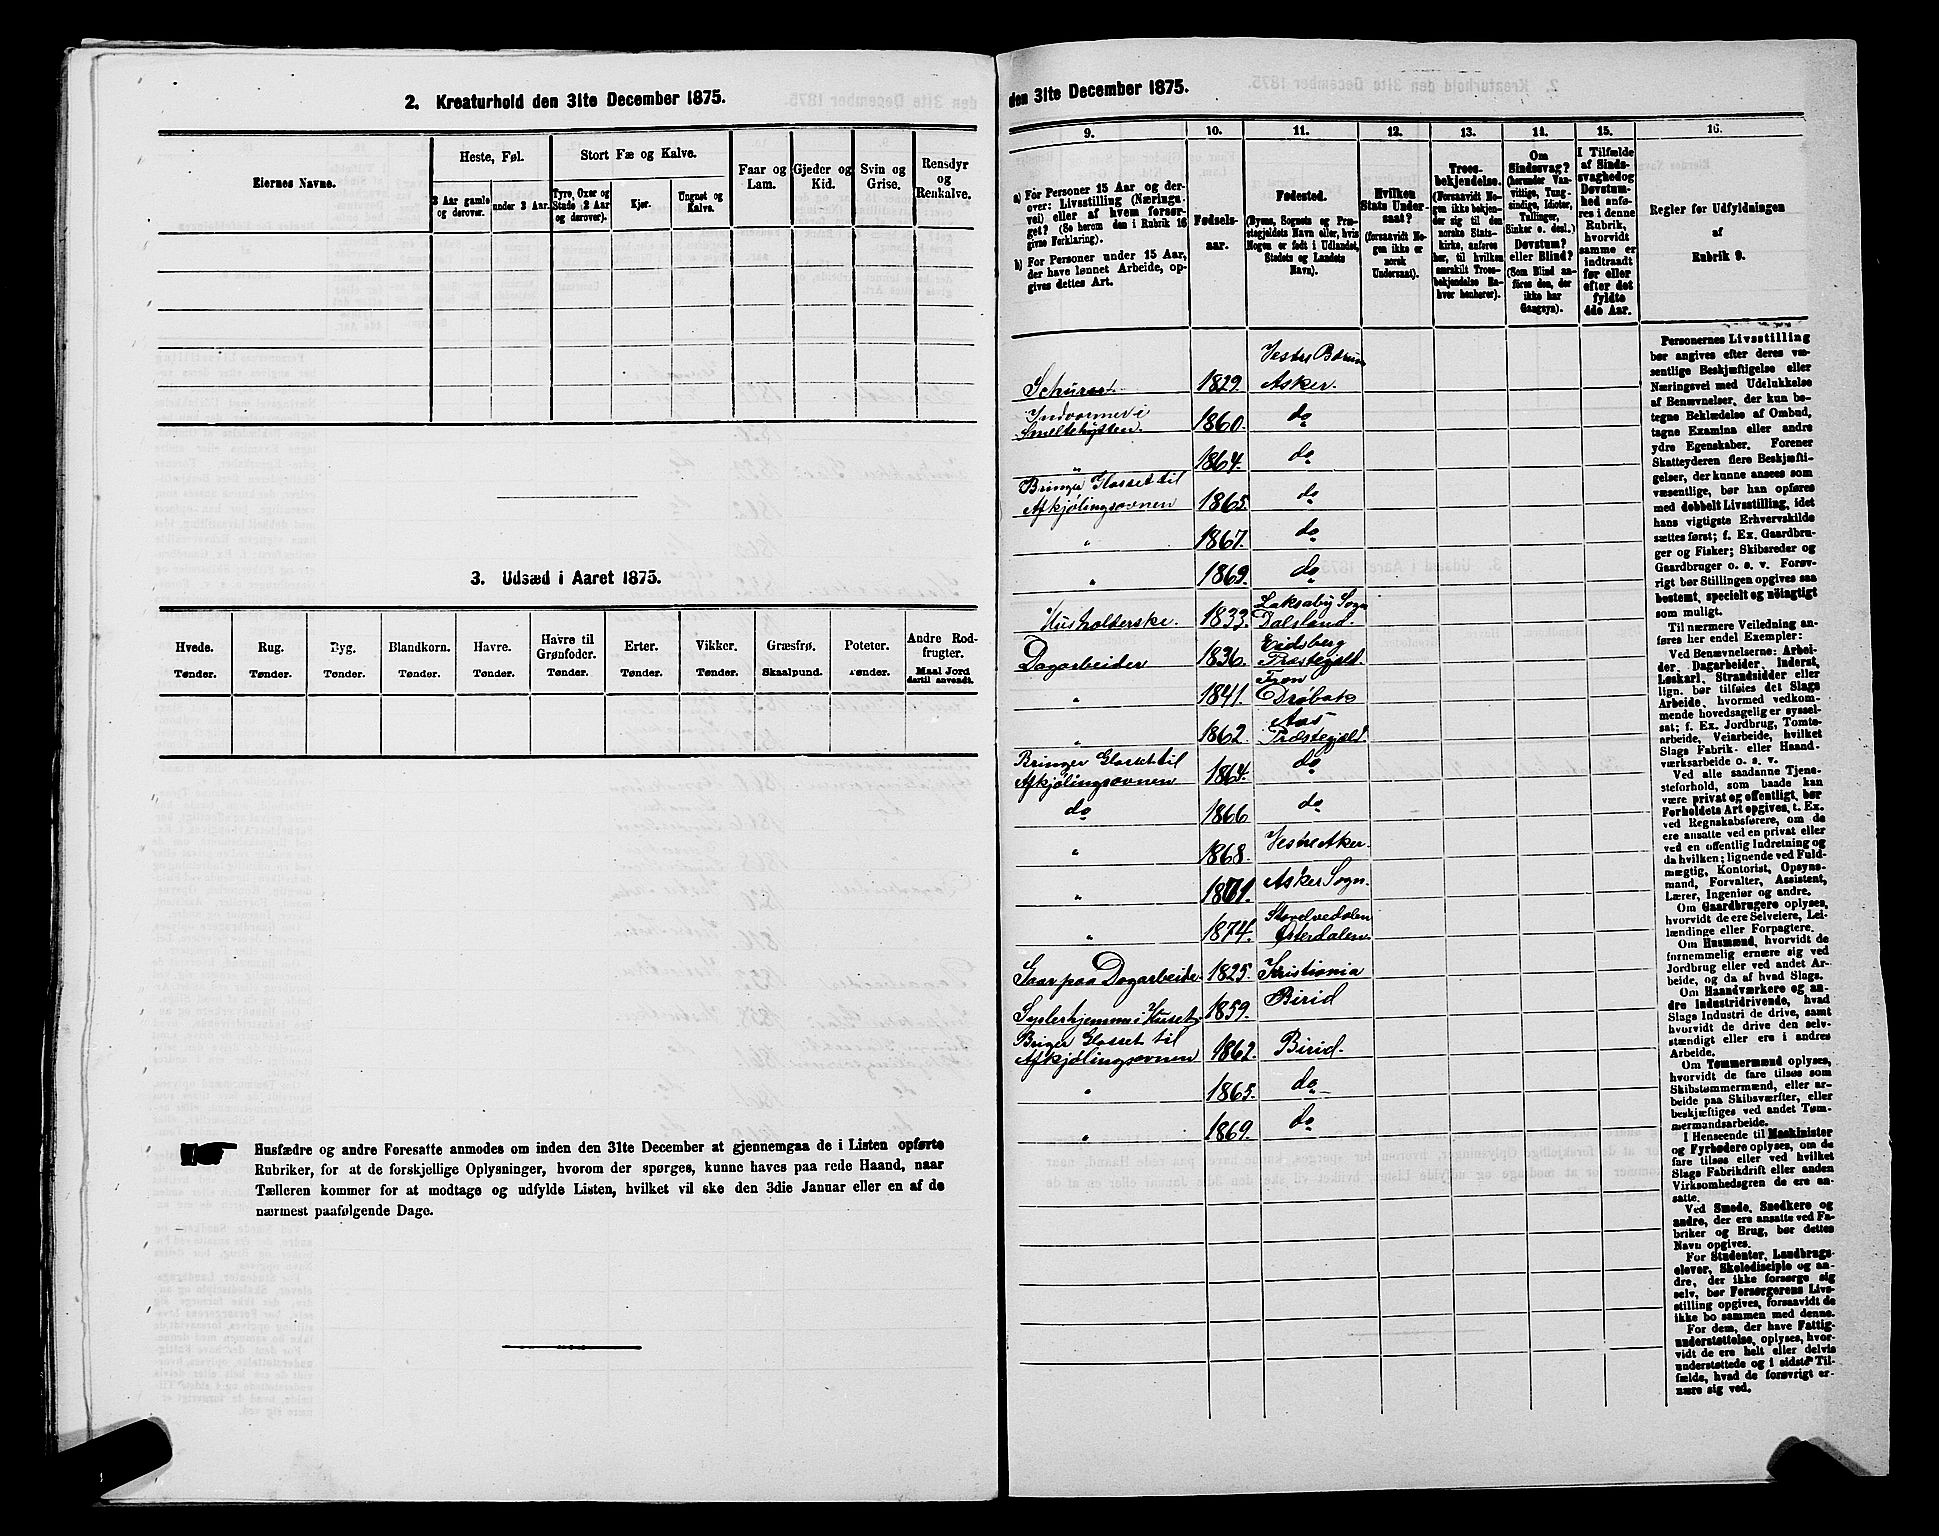 2. Kreaturhold den 31te December 1875.
Eiernes Navne.
Heste, Føl.
3 Aar gamle og derover.
under 3 Aar.
Stort Fæ og Kalve.
Tyre, Oxer og Stude 2 Aar og derover).
Kjør.
Ungnøt og Kalve.
Faar og Lam.
Gjeder og Kid.
Svin og Grise.
Rensdyr og Renkalve.
3. Udsæd i Aaret 1875.
Hvede. Rug. Byg. Blandkorn. Havre. Havre til Grønfoder. Erter. Vikker. Græsfrø. Poteter. Andre Rodfrugter.
Tønder. Tønder. Tønder. Tønder. Tønder. Tønder. Tønder. Tønder. Skaalpund. Tønder. Maal Jord dertil anvendt.
Husfædre og andre Foresatte anmodes om inden den 31te December at gjennemgaa de i Listen opførte
Rubriker, for at de forskjellige Oplysninger, hvorom der spørges, kunne haves paa rede Haand, naar
Tælleren kommer for at modtage og udfylde Listen, hvilket vil ske den 3die Januar eller en af de
nærmest paafølgende Dage.
den 31te December 1875.
9. 10. 11. 12. 13. 14. 15. 16.
a) For Personer 15 Aar og derover: Livsstilling (Næringsvei) eller af hvem forsørget? (Se herom den i Rubrik 16 givne Forklaring).
b) For Personer under 15 Aar, der have lønnet Arbeide, opgives dettes Art.
Fødselsaar.
Fødested.
(Byens, Sognets og Præstegjeldets Navn eller, hvis Nogen er født i Udlandet, Stedets og Landets Navn).
Hvilken Stats Undersaat?
(forsaavidt Nogen ikke er norsk Undersaat).
Troesbekjendelse.
(Forsaavidt Nogen ikke bekjender sig til den norske Statskirke, anføres her, til hvilken særskilt Troesbekjendelse Enhver henhører).
Om Sindssvag? (herunder Vanvittige, Tungsindige, Idioter, Tullinger, Sinker o. desl.) Døvstum? eller Blind? (Som Blind anføres den, der ikke har Gangsyn).
I Tilfælde af Sindssvaghed og Døvstumhed anføres i denne Rubrik, hvorvidt samme er indtraadt før eller efter det fyldte 4de Aar.
Regler for Udfyldningen
af
Rubrik 9.
Vestre Bærum
Schürer 1829. Asker.
Indvarmer i
Smeltehytten. 1860. do
" 1864. do
Bringer Glasset til
Afkjølingsovnen 1865. do
" 1867. do
" 1869. do
Husholderske. 1833. Laksaby Sogn
Dalsland.
Dagarbeider 1836. Eidsberg
Præstegjeld.
" 1841. Fron
Drøbak
" 1862. Aas
Præstegjeld.
Bringer Glasset til
Afkjølingsovnen 1864. do
do 1866 do
" 1868. Vestre Aker.
" 1871. Asker Sogn.
" 1874. Storelvedalen
Østerdalen.
Gaar paa Dagarbeide. 1825. Kristiania
Sysler hjemme i Huset. 1859. Birid
Bringer Glasset til
Afkjølingsovnen 1862. Birid.
" 1865. do
" 1869. do
Personernes Livsstilling
bør angives efter deres væ-
sentlige Beskjæftigelse eller
Næringsvei med Udelukkelse
af Benævnelser, der kun be-
tegne Beklædelse af Ombud,
tagne Examina eller andre
ydre Egenskaber. Forener
Skatteyderen flere Beskjæfti-
gelser, der kunne ansees som
væsentlige, bør han opføres
med dobbelt Livsstilling, idet
hans vigtigste Erhvervskilde
sættes først; f. Ex. Gaardbru-
ger og Fisker; Skibsreder og
Gaardbruger o. s. v. Forøv-
rigt bør Stillingen opgives saa
bestemt, specielt og nøiagtigt
som muligt.
Til nærmere Veiledning an-
føres her endel Exempler:
Ved Benævnelserne: Arbei-
der, Dagarbeider, Inderst,
Løskarl, Strandsidder eller
lign. bør tilføies det Slags
Arbeide, hvormed vedkom-
mende hovedsagelig er syssel-
sat; f. Ex. Jordbrug, Tomte-
arbeide, Veiarbeide, hvilket
Slags Fabrik- eller Haand-
værksarbeide o. s. v.
Ved alle saadanne Tjene-
steforhold, som baade kan
være privat og offentligt, bør
Forholdets Art opgives, t. Ex.
ved Regnskabsførere, om de
ere ansatte ved en privat eller
ved en offentlig Indretning og
da hvilken; lignende ved Fuld-
mægtig, Kontorist, Opsyns-
mand, Forvalter, Assistent,
Lærer, Ingeniør og andre.
Om Gaardbrugere oplyses,
hvorvidt de ere Selveiere, Lei-
lændinge eller Forpagtere.
Om Husmænd, hvorvidt de
fornemmelig ernære sig ved
Jordbrug eller ved andet Ar-
beide, og da af hvad Slags.
Om Haandværkere og an-
dre Industridrivende, hvad
Slags Industri de drive, samt
hvorvidt de drive den selv-
stændigt eller ere i andres
Arbeide.
Om Tømmermænd oplyses,
hvorvidt de fare tilsøs som
Skibstømmermænd, eller ar-
beide paa Skibsværfter, eller
beskjæftiges ved andet Tøm-
mermandsarbeide.
I Henseende til Maskinister
og Fyrbødere oplyses, om de
fare tilsøs eller ved hvilket
Slags Fabrikdrift eller anden
Virksomhedsgren de ere an-
satte.
Ved Smede, Snedkere og
andre, der ere ansatte ved Fa-
briker og Brug, bør dettes
Navn opgives.
For Studenter, Landbrugs-
elever, Skoledisciple og an-
dre, der ikke forsørge sig
selv, bør Forsørgerens Livs-
stilling opgives, forsaavidt de
ikke bo sammen med denne.
For dem, der have Fattig-
understøttelse, oplyses, hvor-
vidt de ere helt eller delvis
understøttede og i sidste Til-
fælde, hvad de forøvrigt er-
nære sig ved.